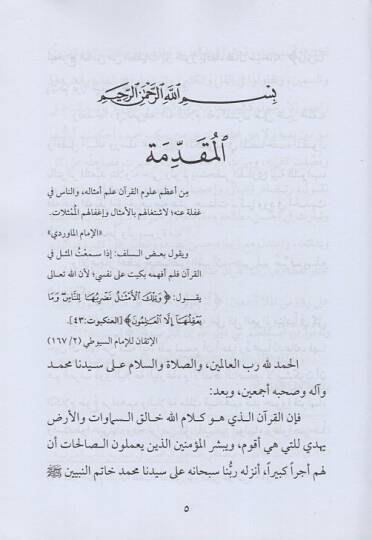 بِسْمِ اللَّهِ الرَّحْمَٰنِ الرَّحِيمِ
المُقَدِّمَة
مِن أعظم علوم القرآن علم أمثاله، والناس في
غفلة عنه؛ لاشتغالهم بالأمثال وإغفالهم المُمْثلات.
«الإمام الماوردي»
ويقول بعض السلف: إذا سمعتُ المثل في
القرآن فلم أفهمه بكيت على نفسي؛ لأن الله تعالى
يقول: ﴿وَتِلْكَ الْأَمْثَالُ نَضْرِبُهَا لِلنَّاسِ وَمَا
يَعْقِلُهَا إِلَّا الْعَالِمُونَ﴾ [العنكبوت: ٤٣].
الإتقان للإمام السيوطي (٢/ ١٦٧)
الحمد لله رب العالمين، والصلاة والسلام على سيدنا محمد
وآله وصحبه أجمعين، وبعد:
فإن القرآن الذي هو كلام الله خالق السماوات والأرض
يهدي للتي هي أقوم، ويبشر المؤمنين الذين يعملون الصالحات أن
لهم أجراً كبيراً، أنزله ربُّنا سبحانه على سيدنا محمد خاتم النبيين ﷺ
٥